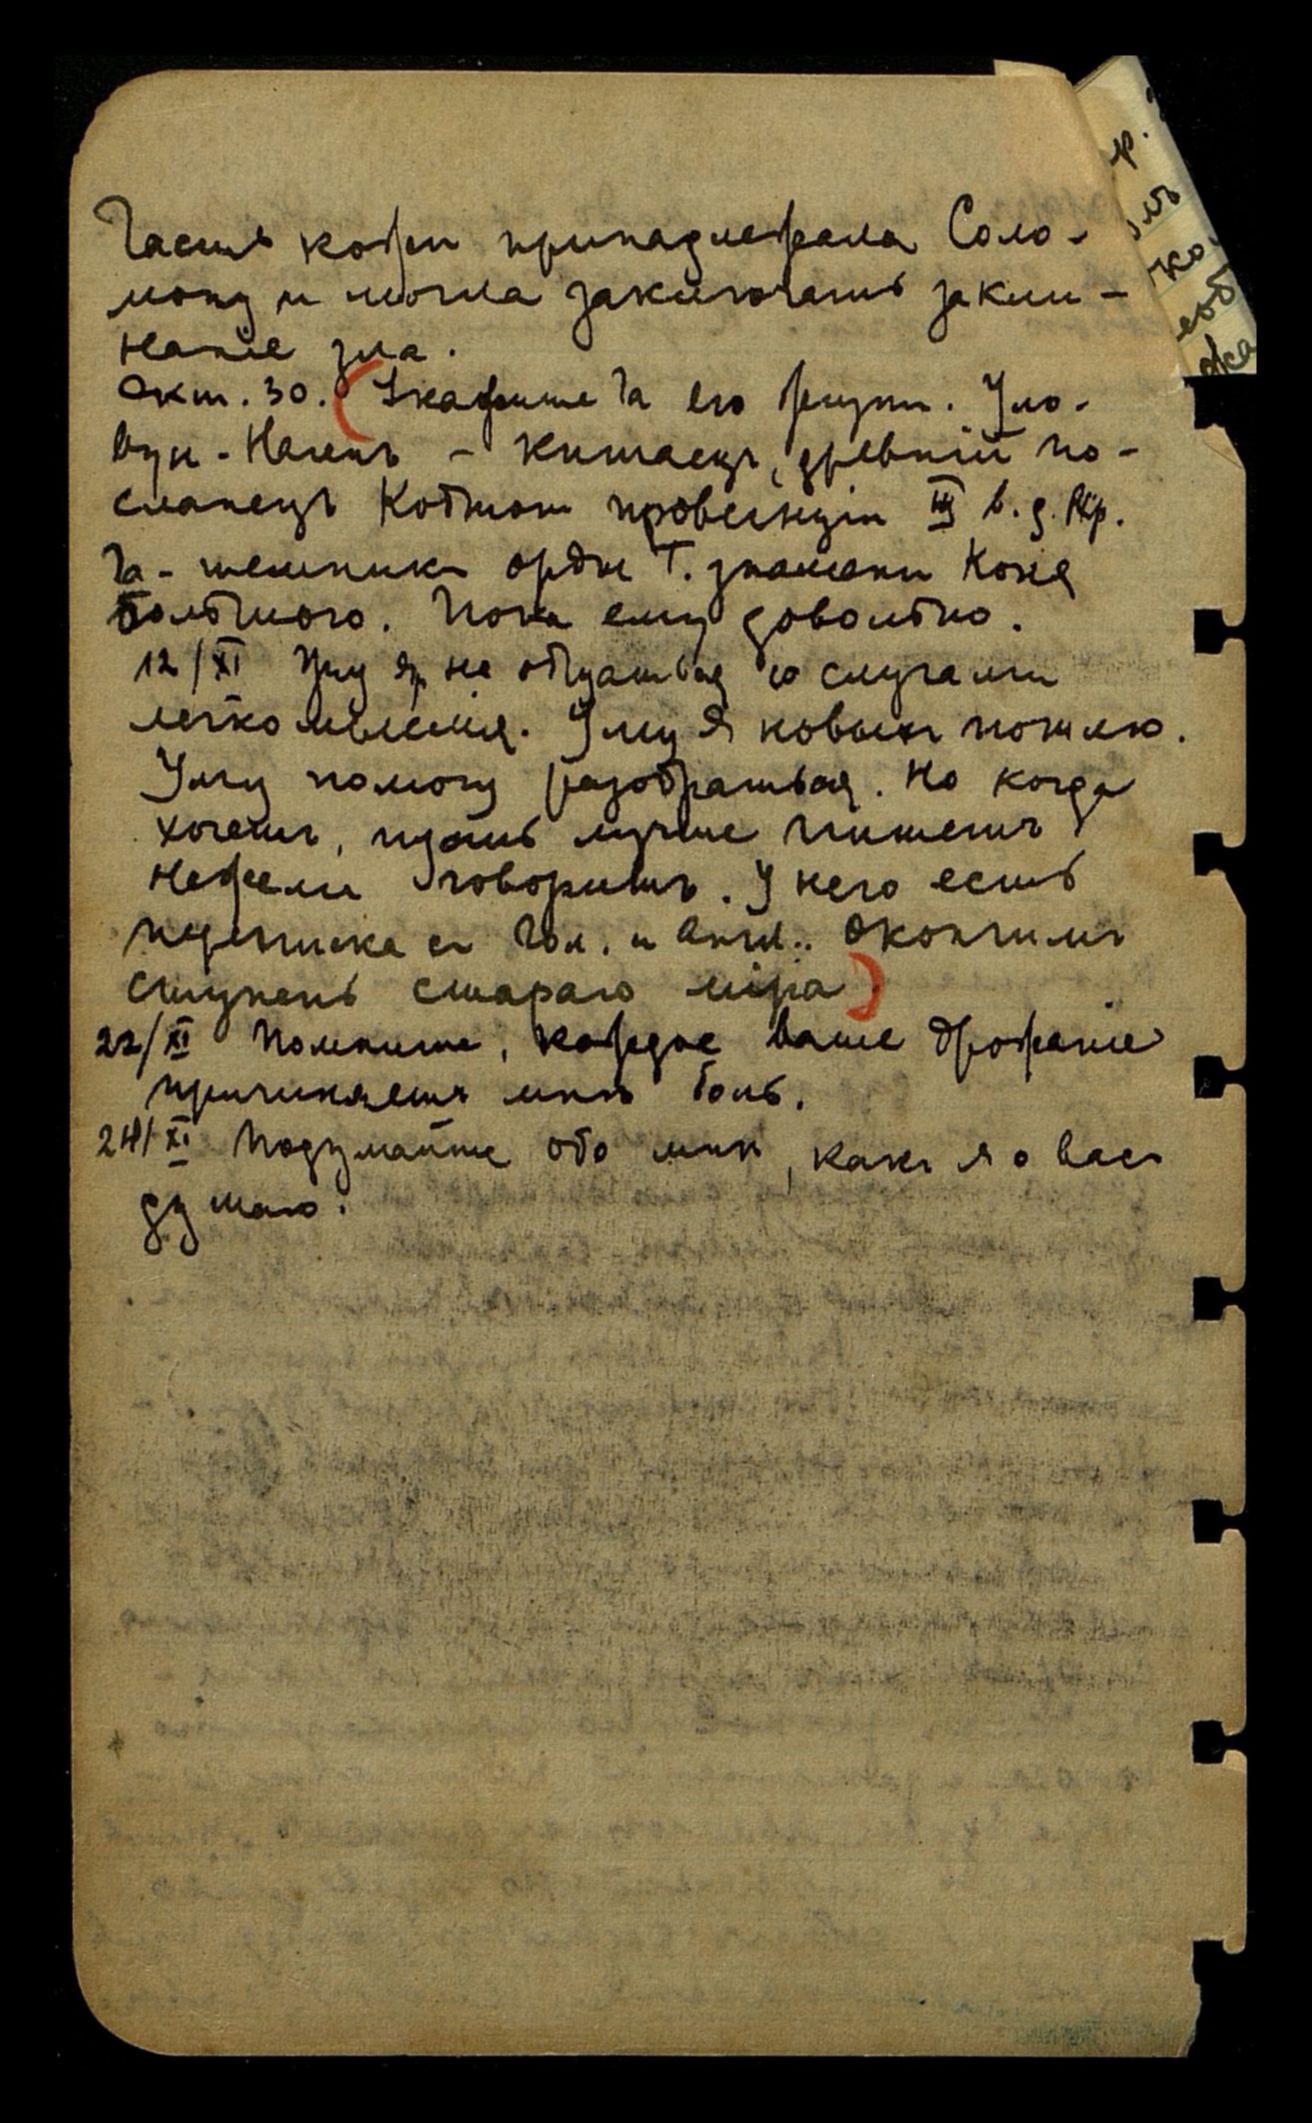 Часть кожи принадлежала Соло-
мону и могла заключать закли-
нанiе зла.
Окт. 30. (Скажите Ча его жизни. Уло-
Вун - китаецъ, древнiй по-
сланецъ провинцiи III в. д. Хр.
Ча - орд. Т. знамени Коня
. Пока ему довольно.
12/XI Ему не со случаями
легкомыслiя. Ему я новыхъ пошлю.
Ему помогу разобраться. Но когда
хочетъ, пусть лучше пишетъ
нежели говоритъ. У него есть
переписка съ Гол. и Англ.. Окончимъ
ступень стараго мiра)
22/XI Помните, каждое ваше дрожанiе
причиняетъ мнѣ боль.
24/XI Подумайте обо мнѣ, какъ я о васъ
думаю.